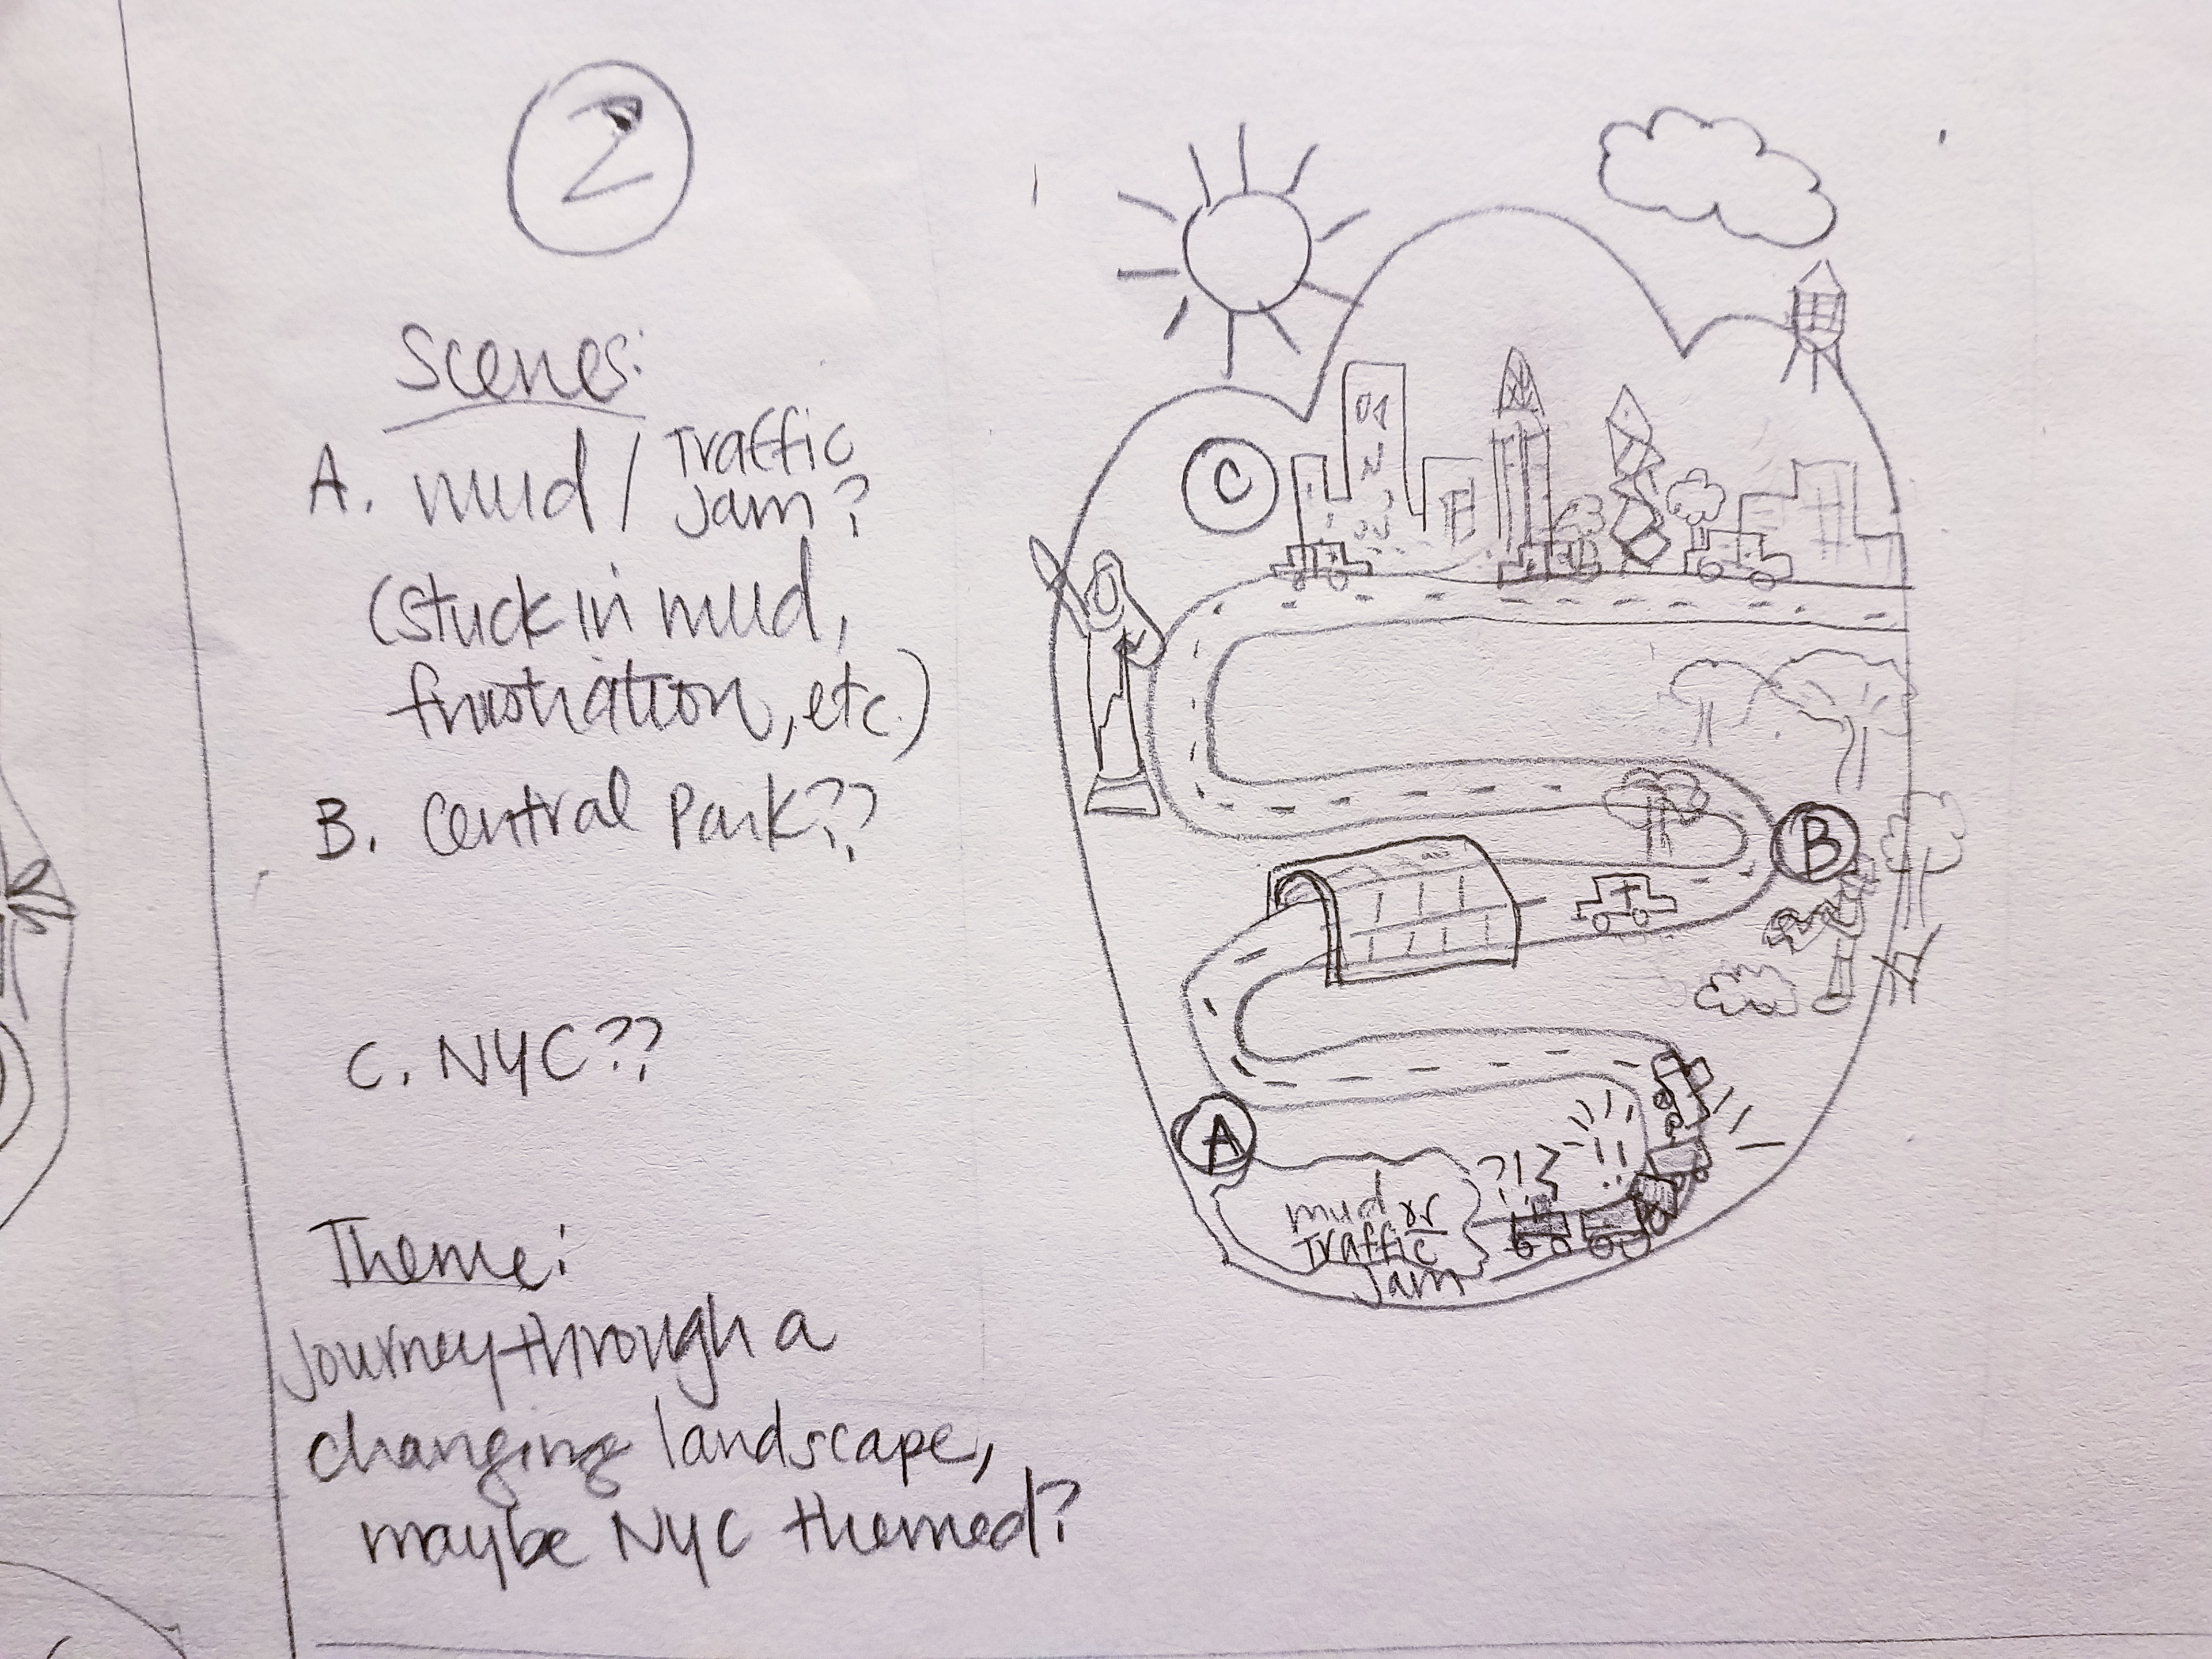 2
Scenes:
A. mud / Traffic
Jam?
(stuck in mud,
frustration, etc.)
B. Central Park??
C. NYC??
Theme:
Journey through a
changing landscape,
maybe NYC themed?
C
B
A
?!? !!
mud or
Traffic
Jam